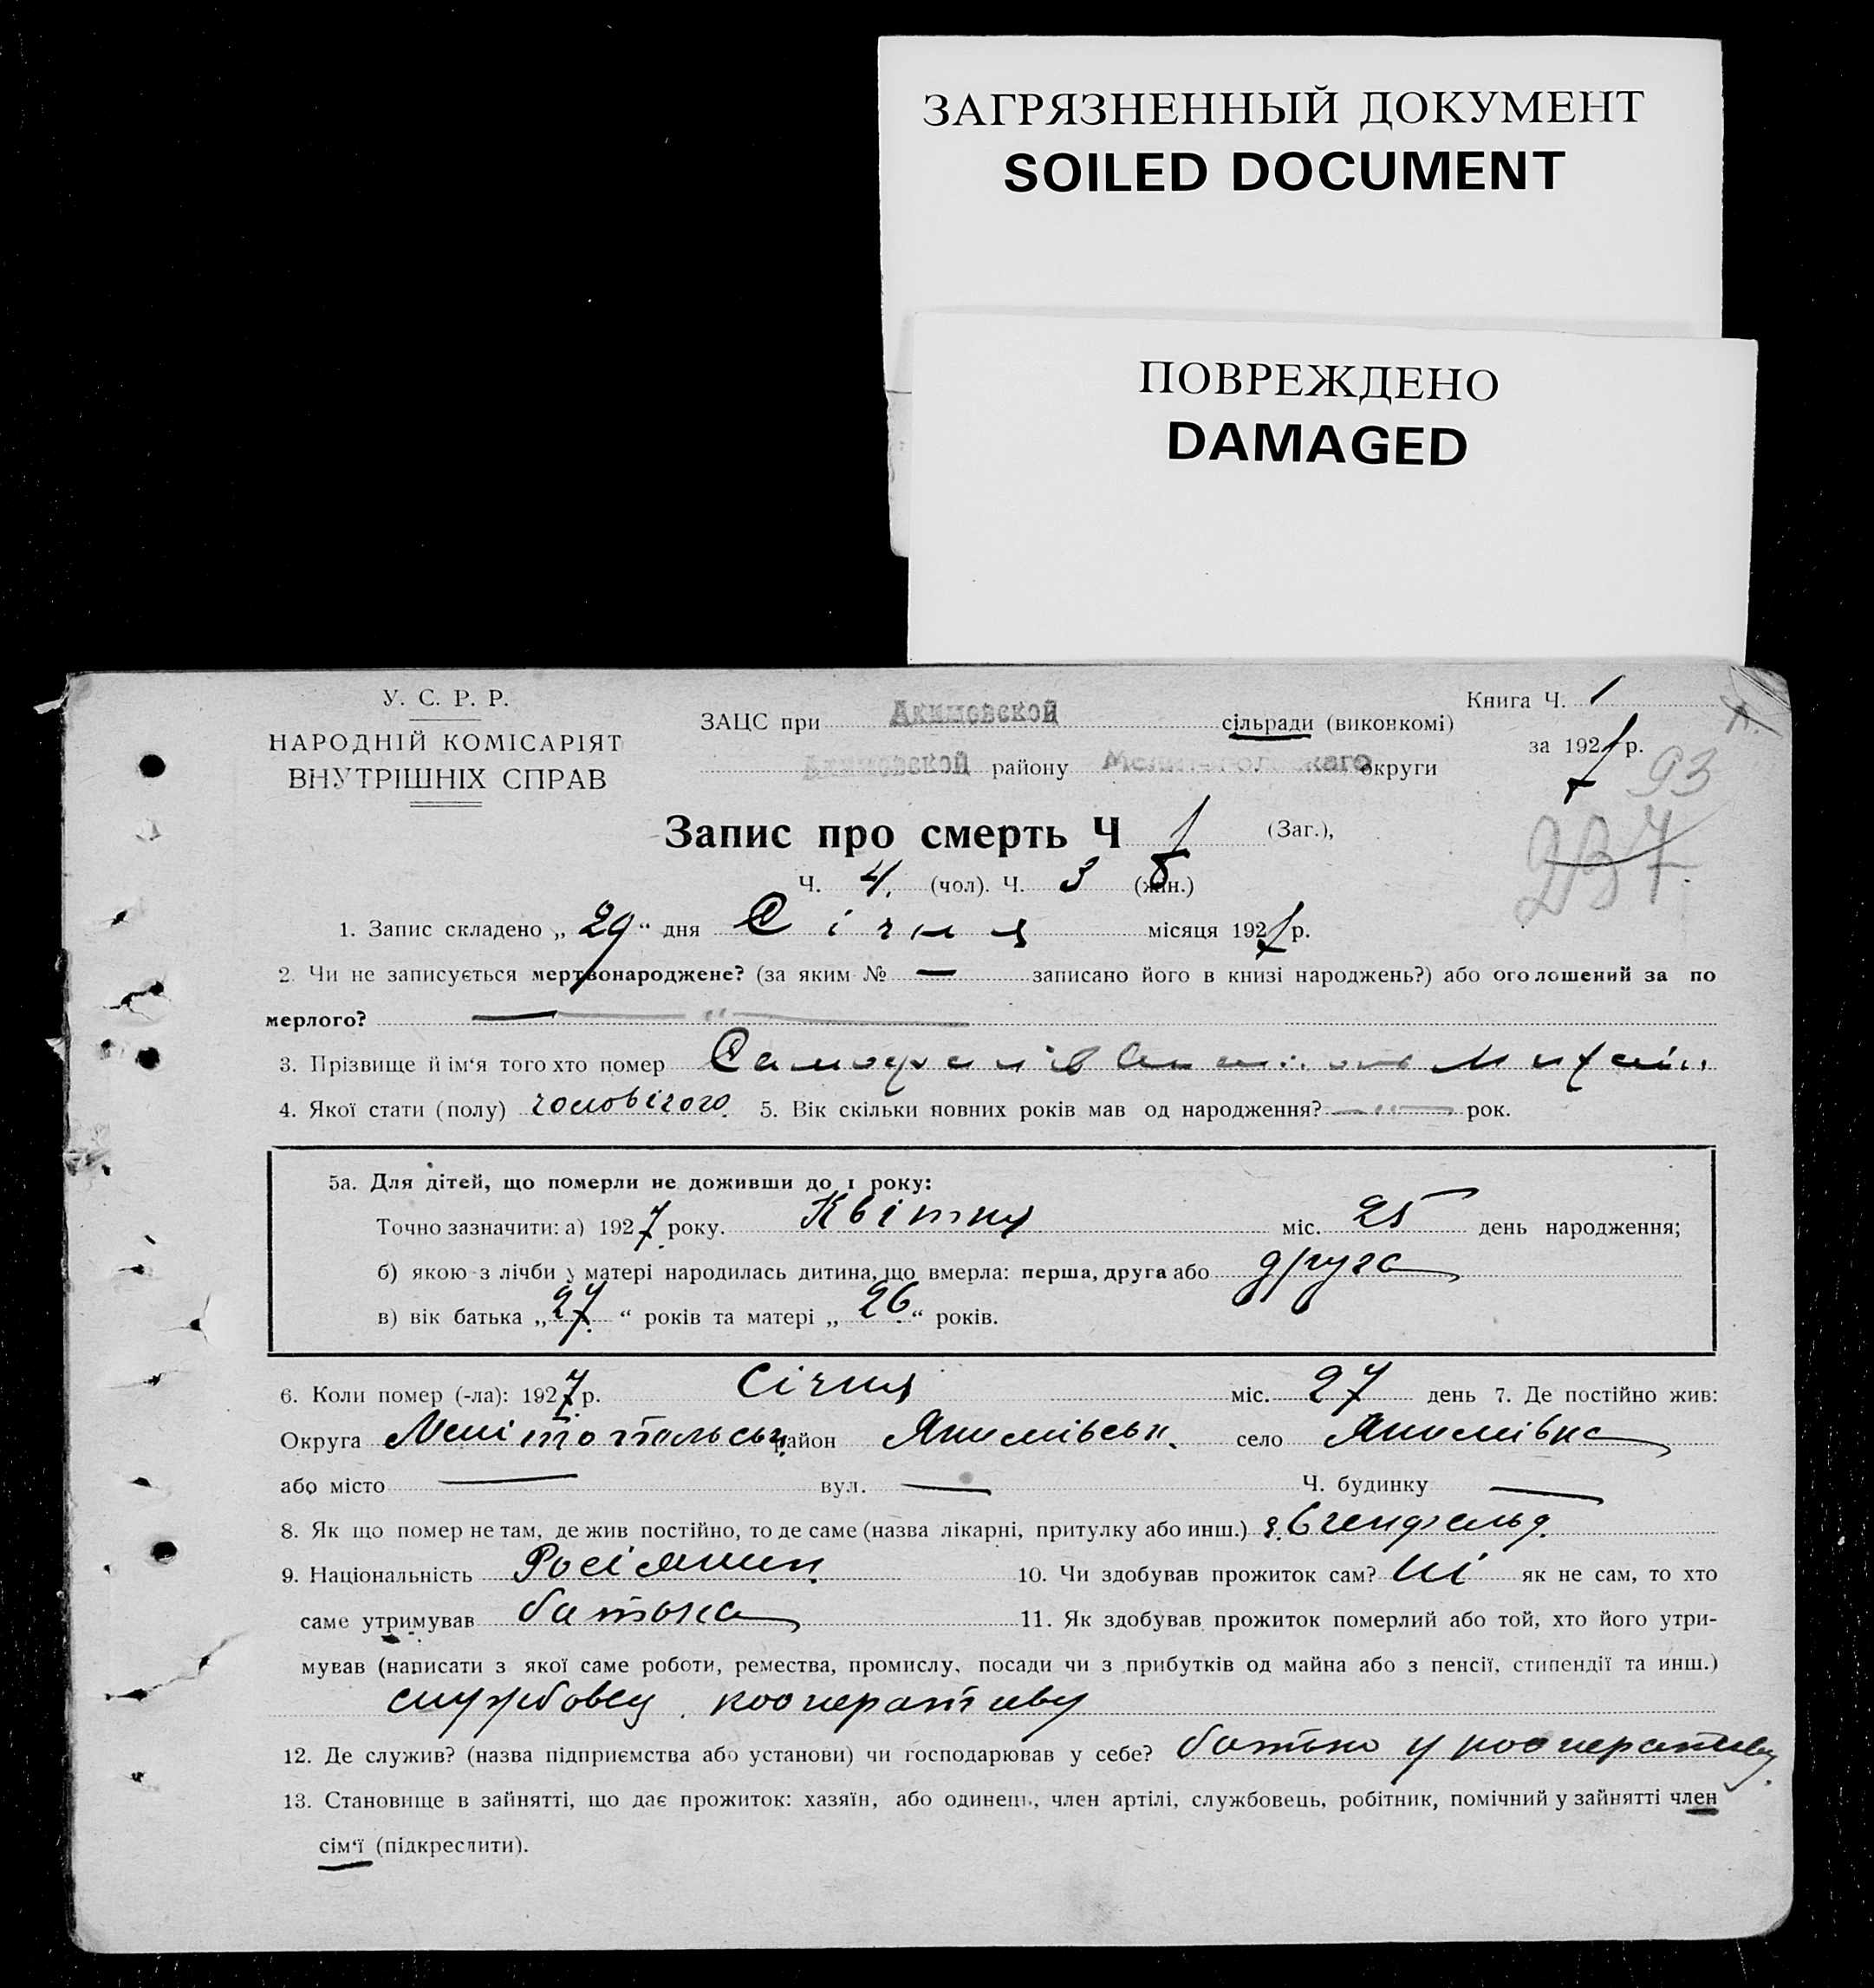 ЗАГРЯЗНЕННЫЙ ДОКУМЕНТ
SOILED DOCUMENT
ПОВРЕЖДЕНО
DAMAGED
У. С. Р. Р.
НАРОДНІЙ КОМІСАРІЯТ
ВНУТРІШНІХ СПРАВ
Книга Ч. 1
ЗАЦС при Акимовской сільради (виконкомі)
за 1927 р.
Акимовской району округи
93
Запис про смерть Ч (Заг.),
237
Ч. 4. (чол). Ч. 3 (жін.)
1. Запис складено „ 29 “ дня Січня місяця 1927 р.
2. Чи не записується мертвонароджене? (за яким № — записано його в книзі народжень?) або оголошений за по
мерлого? — " —
3. Прізвище й ім‘я того хто помер Михаіл
4. Якої стати (полу) чоловічого. 5. Вік скільки повних років мав од народження? — " — рок.
5а. Для дітей, що померли не доживши до 1 року:
Точно зазначити: а) 1927 року. Квітня міс. 25 день народження;
б) якою з лічби у матері народилась дитина, що вмерла: перша, друга або друга
в) вік батька „ 27 “ років та матері „ 26 “ років.
6. Коли помер (-ла): 1927 р. Січня міс. 27 день 7. Де постійно жив:
Округа Мелітопольськ. район Якимівськ. село Якимівка
або місто — вул. — Ч. будинку —
8. Як що помер не там, де жив постійно, то де саме (назва лікарні, притулку або инш.)
9. Національність Росіянин. 10. Чи здобував прожиток сам? Ні як не сам, то хто
саме утримував батька 11. Як здобував прожиток померлий або той, хто його утри-
мував (написати з якої саме роботи, ремества, промислу, посади чи з прибутків од майна або з пенсії, стипендії та инш.)
службовец кооперативу
12. Де служив? (назва підприємства або установи) чи господарював у себе? батько у кооперативу.
13. Становище в зайнятті, що дає прожиток: хазяїн, або одинець, член артілі, службовець, робітник, помічний у зайнятті член
сім‘ї (підкреслити).